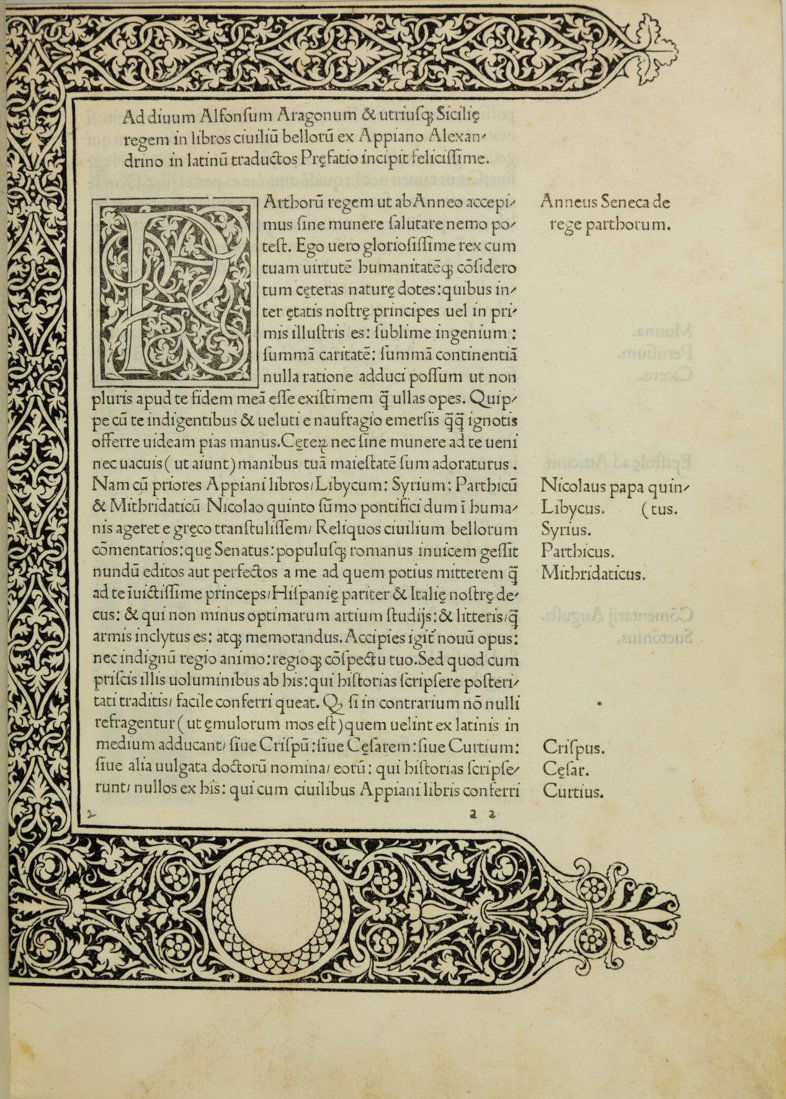 Ad diuum Alfonſum Aragonum & utriuſqꝫ Sicilię
regem in libros ciuiliū bellorū ex Appiano Alexan⸗
drino in latinū traductos Pręfatio incipit feliciſſime.
PArthorū regem ut ab Anneo accepi⸗
mus ſine munere ſalutare nemo po⸗
teſt. Ego uero glorioſiſſime rex cum
tuam uirtutē humanitatēqꝫ cōſidero
tum cęteras naturę dotes: quibus in⸗
ter ętatis noſtrę principes uel in pri⸗
mis illuſtris es: ſublime ingenium:
ſummā caritatē: ſummā continentiā
nulla ratione adduci poſſum ut non
pluris apud te fidem meā eſſe exiſtimem q̄ ullas opes. Quip⸗
pe cū te indigentibus & ueluti e naufragio emerſis q̄q̄ ignotis
offerre uideam pias manus. Cęteꝝ nec ſine munere ad te ueni
nec uacuis (ut aiunt) manibus tuā maieſtatē ſum adoraturus.
Nam cū priores Appiani libros/ Libycum: Syrium: Parthicū
& Mithridaticū Nicolao quinto ſūmo pontifici dum ī huma⸗
nis ageret e gręco tranſtuliſſem/ Reliquos ciuilium bellorum
cōmentarios: quę Senatus: populuſqꝫ romanus inuicem geſſit
nundū editos aut perfectos a me ad quem potius mitterem q̄
ad te īuictiſſime princeps/ Hiſpanię pariter & Italię noſtrę de⸗
cus: & qui non minus optimarum artium ſtudijs: & litteris/ q̄
armis inclytus es: atqꝫ memorandus. Accipies igit᷑ nouū opus:
nec indignū regio animo: regioqꝫ cōſpectu tuo. Sed quod cum
priſcis illis uoluminibus ab his: qui hiſtorias ſcripſere poſteri⸗
tati traditis/ facile conferri queat. Qꝫ ſi in contrarium nō nulli
refragentur (ut ęmulorum mos eſt) quem uelint ex latinis in
medium adducant/ ſiue Criſpū: ſiue Cęſarem: ſiue Curtium:
ſiue alia uulgata doctorū nomina/ eorū: qui hiſtorias ſcripſe⸗
runt/ nullos ex his: qui cum ciuilibus Appiani libris conferri
2
a 2
Anneus Seneca de
rege parthorum.
Nicolaus papa quin⸗
Libycus. (tus.
Syrius.
Parthicus.
Mithridaticus.
Criſpus.
Cęſar.
Curtius.